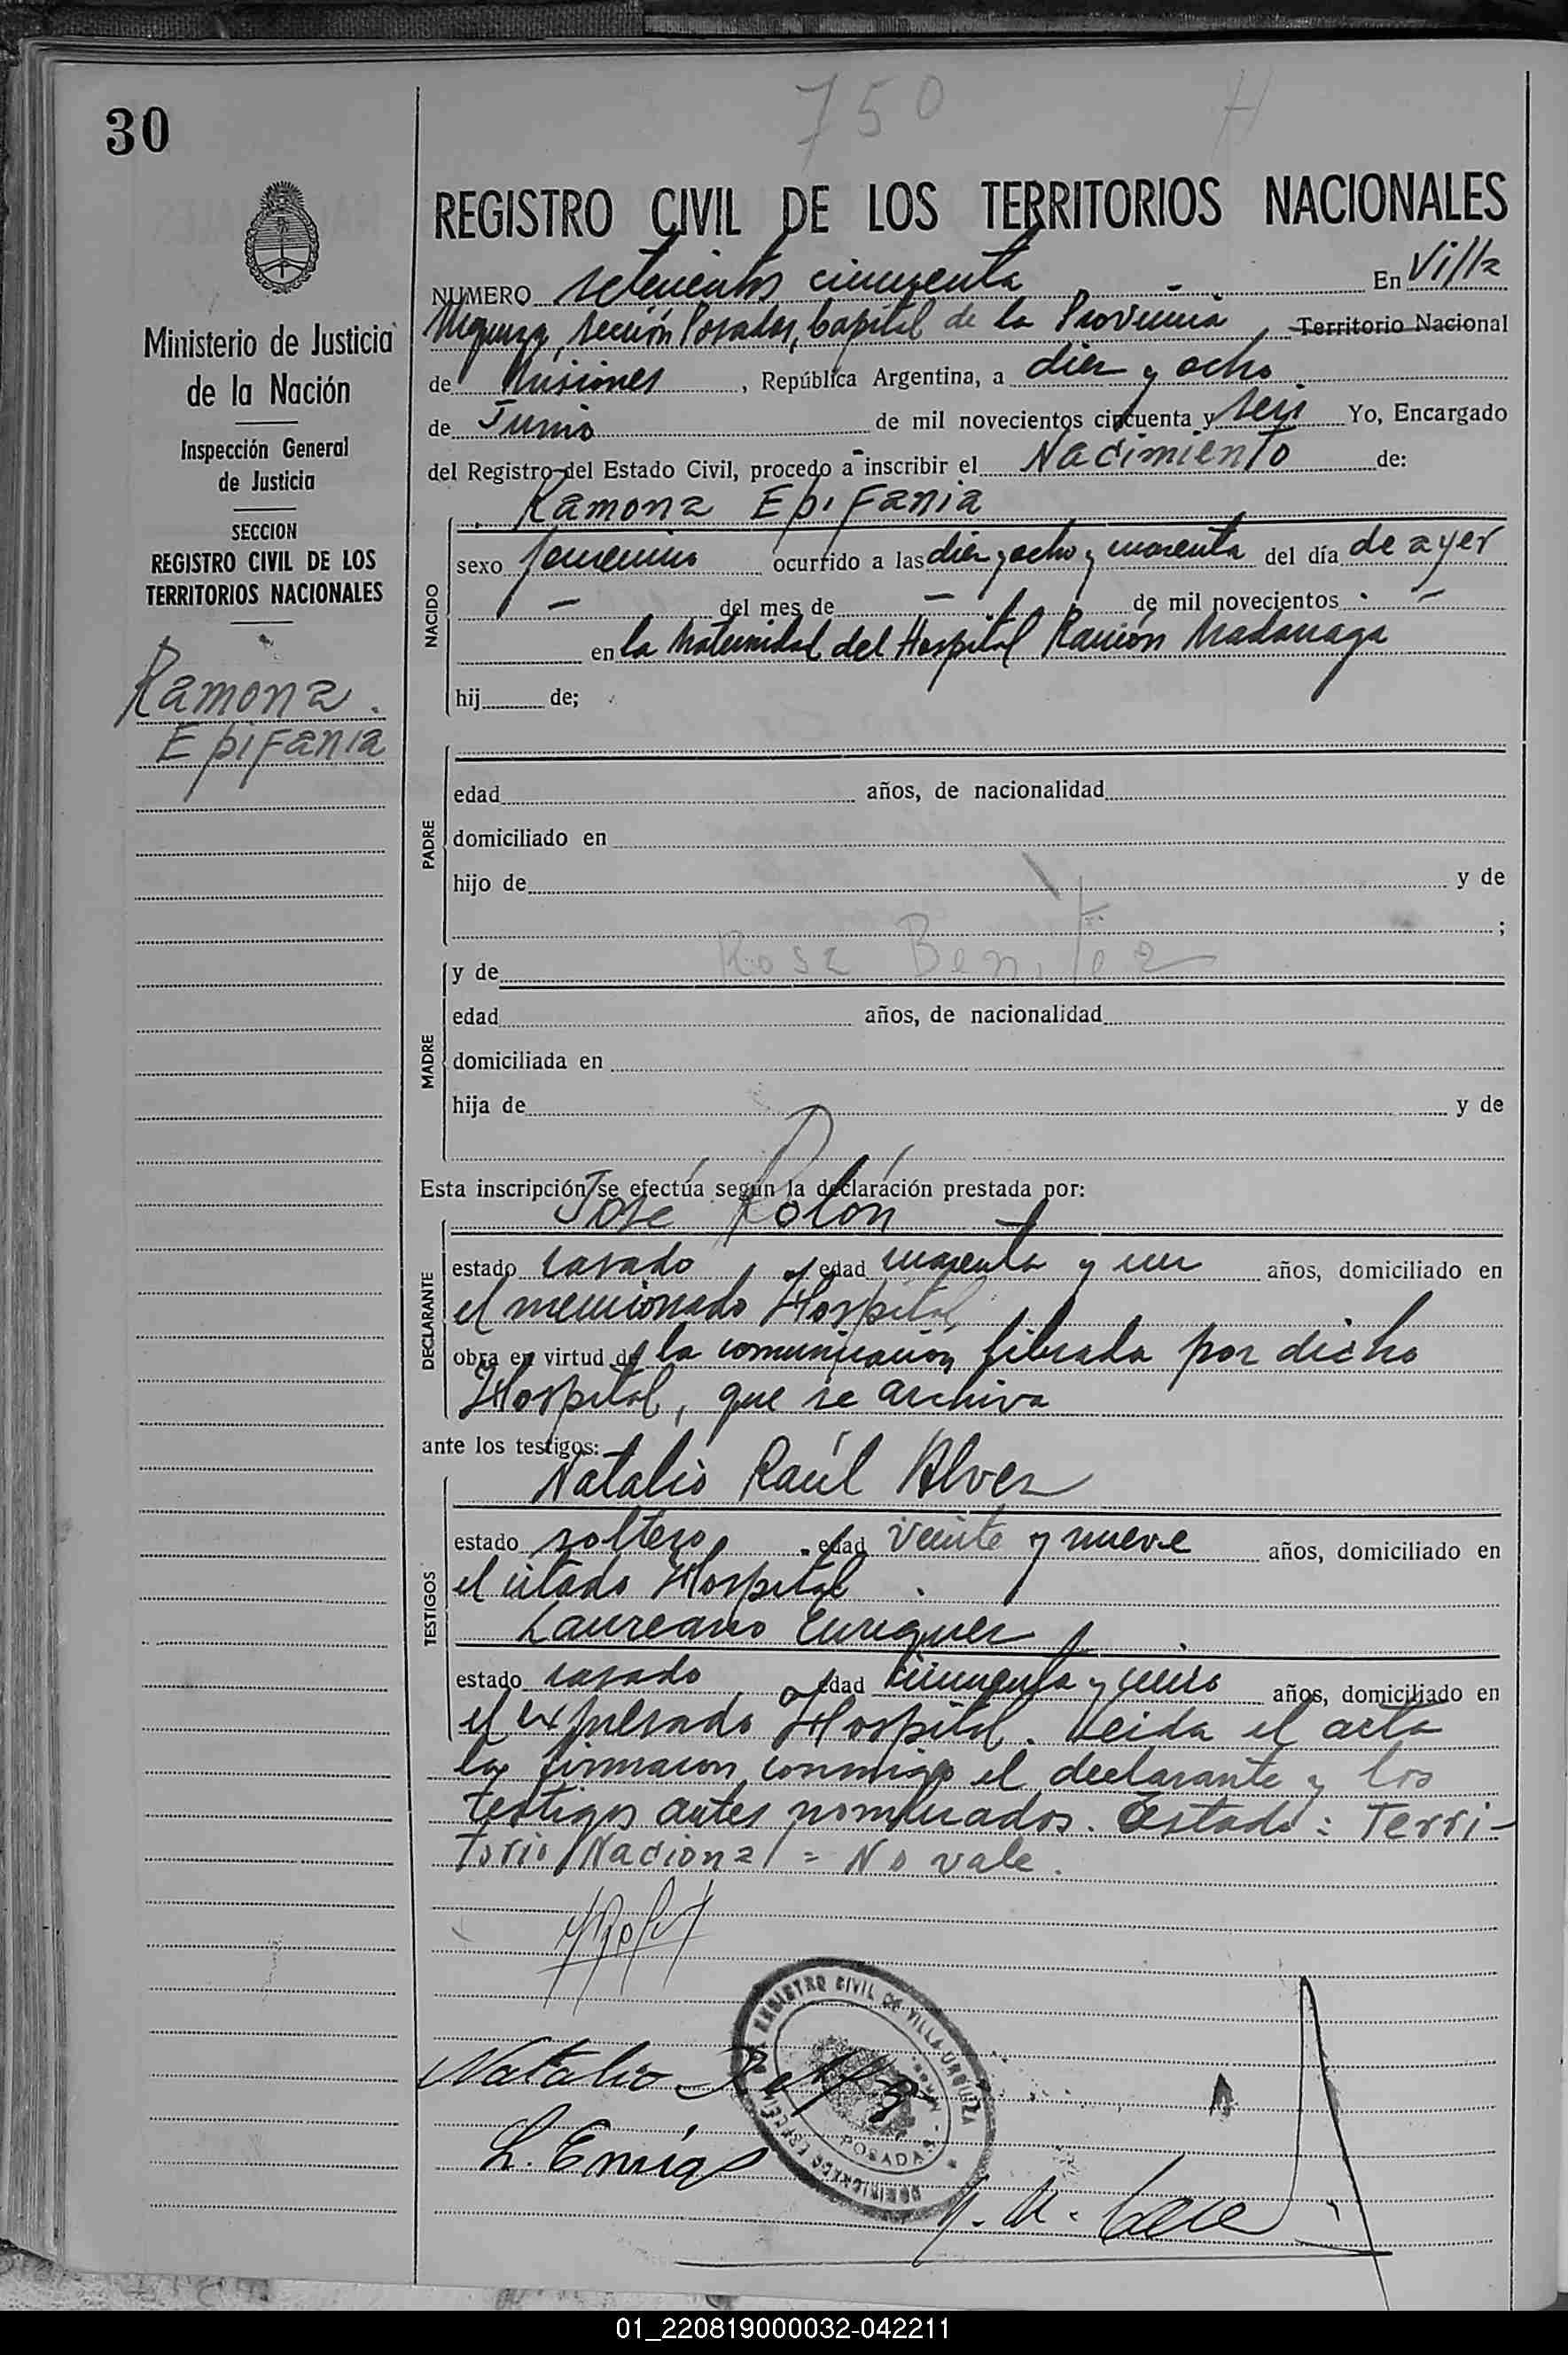 30
750
H
REGISTRO CIVIL DE LOS TERRITORIOS NACIONALES
NUMERO setecientos cincuenta - En Villa
Urquiza, sección Posadas, Capital de la Provincia, Territorio Nacional
de Misiones, República Argentina, a diez y ocho
de Junio de mil novecientos cincuenta y seis Yo, Encargado
del Registro del Estado Civil, procedo a inscribir el Nacimiento de:
Ministerio de Justicia
de la Nación
Inspección General
de Justicia
SECCION
REGISTRO CIVIL DE LOS
TERRITORIOS NACIONALES
Ramona
Epifania
NACIDO
Ramona Epifania
sexo femenino ocurrido a las diez y ocho y cuarenta del día de ayer
- del mes de - de mil novecientos -
en la Maternidad del Hospital Ramón Madariaga
hij de;
PADRE
edad años, de nacionalidad
domiciliado en
hijo de y de
;
MADRE
y de Rosa Benitez
edad años, de nacionalidad
domiciliada en
hija de y de
Esta inscripción se efectúa según la declaración prestada por:
DECLARANTE
José Rolón
estado casado, edad cuarenta y un años, domiciliado en
el mencionado Hospital
obra en virtud de la comunicación librada por dicho
Hospital, que se archiva
ante los testigos:
TESTIGOS
Natalio Raúl Alvez
estado soltero, edad veinte y nueve años, domiciliado en
el citado Hospital.
Laureano Enriquez
estado casado, edad cincuenta y cinco años, domiciliado en
el expresado Hospital. Leida el acta
la firmaron conmigo el declarante y los
testigos antes nombrados. Testado: Terri-
torio Nacional = No vale.
Natalio R
L. Enriq
REGISTRO CIVIL DE VILLA URQUIZA
POSADAS
01_220819000032-042211